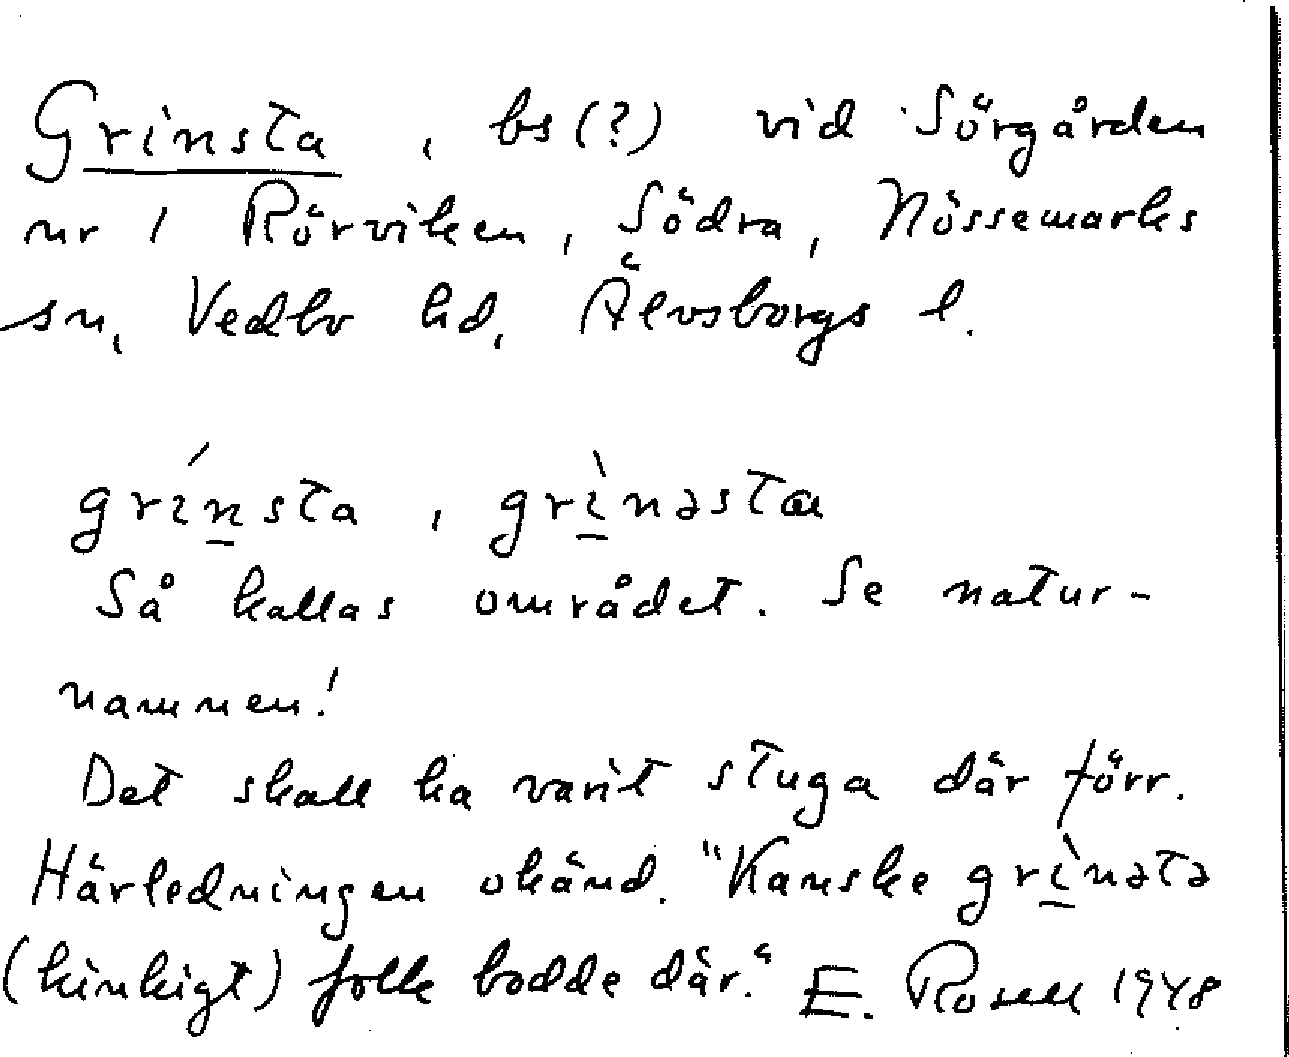 Grinsta, bs(?) vid Sörgården
nr 1 Rörviken, Södra, Nössemarks
sn, Vedbo hd, Älvsborgs l.
grínsta, grìnəsta
Så kallas området. Se natur-
namnen!
Det skall ha varit stuga där förr.
Härledningen okänd. "Kanske grìnətə
(kinkigt) folk bodde där." E. Rosell 1948